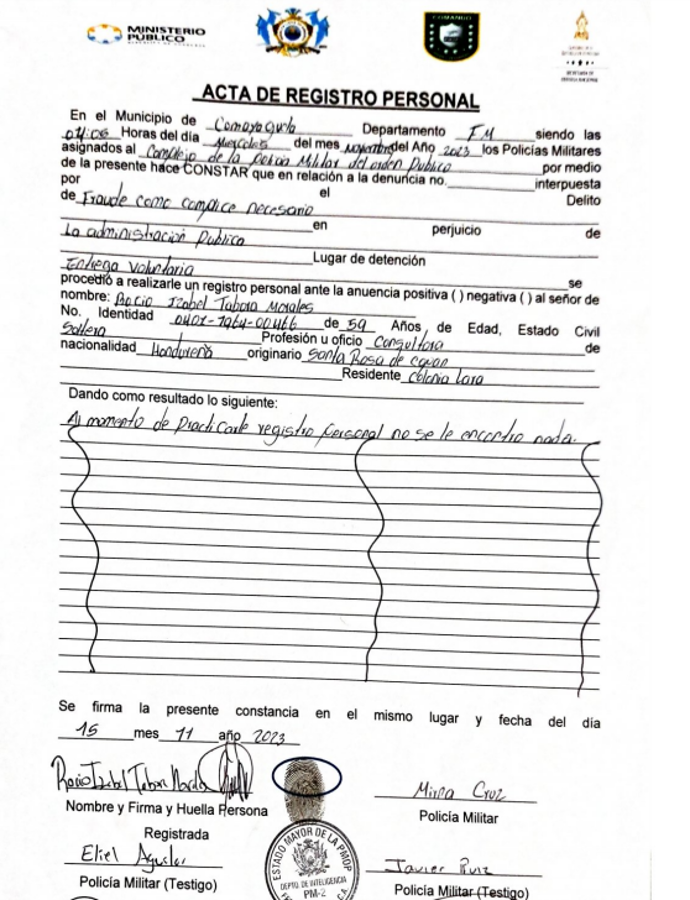 MINISTERIO
PÚBLICO
COMANDO
ACTA DE REGISTRO PERSONAL
En el Municipio de Comayaguela Departamento FM siendo las
04:06 Horas del día Miercoles del mes Noviembre del Año 2023 los Policías Militares
asignados al Complejo de la Policia Militar del orden Publico por medio
de la presente hace CONSTAR que en relación a la denuncia no. interpuesta
por el Delito
de Fraude como complice necesario
en perjuicio de
La administración Publica
Lugar de detención
Entrega Voluntaria se
procedió a realizarle un registro personal ante la anuencia positiva ( ) negativa ( ) al señor de
nombre: Rocio Izabel Tabora Morales
No. Identidad 0401-1964-00466 de 59 Años de Edad, Estado Civil
Soltera Profesión u oficio Consultora de
nacionalidad Hondureña originario Santa Rosa de copan
Residente Colonia Lara
Dando como resultado lo siguiente:
Al momento de Practicarle registro personal no se le encontro nada.
Se firma la presente constancia en el mismo lugar y fecha del día
15 mes 11 año 2023
Rocio Izabel Tabora Morales
Mirna Cruz
Nombre y Firma y Huella Persona
Registrada
Policía Militar
Eliel Aguilar
Javier Ruiz
Policía Militar (Testigo)
Policía Militar (Testigo)
ESTADO MAYOR DE LA PMOP
DEPTO. DE INTELIGENCIA
PM-2